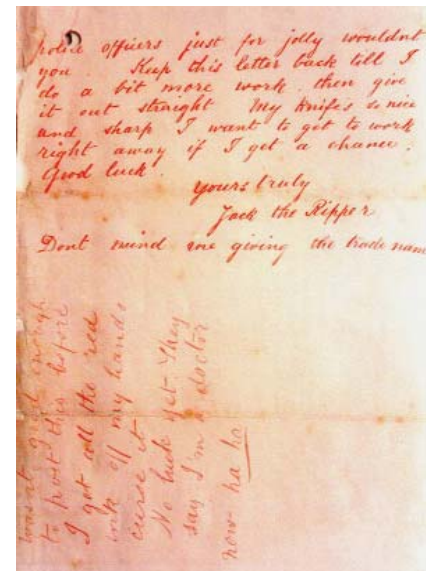 police officers just for jolly wouldnt
you. Keep this letter back till I
do a bit more work. then give
it out straight My knife's so nice
and sharp I want to get to work
right away if I get a chance.
Good luck.
yours truly
Jack the Ripper
Dont mind me giving the trade name
wasnt good enough
to post this before
I got all the red
ink off my hands
curse it
No luck yet. They
say I'm a doctor
now ha ha